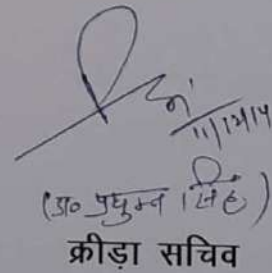 11/12/14
(प्रा० प्रद्युम्न सिंह)
क्रीड़ा सचिव